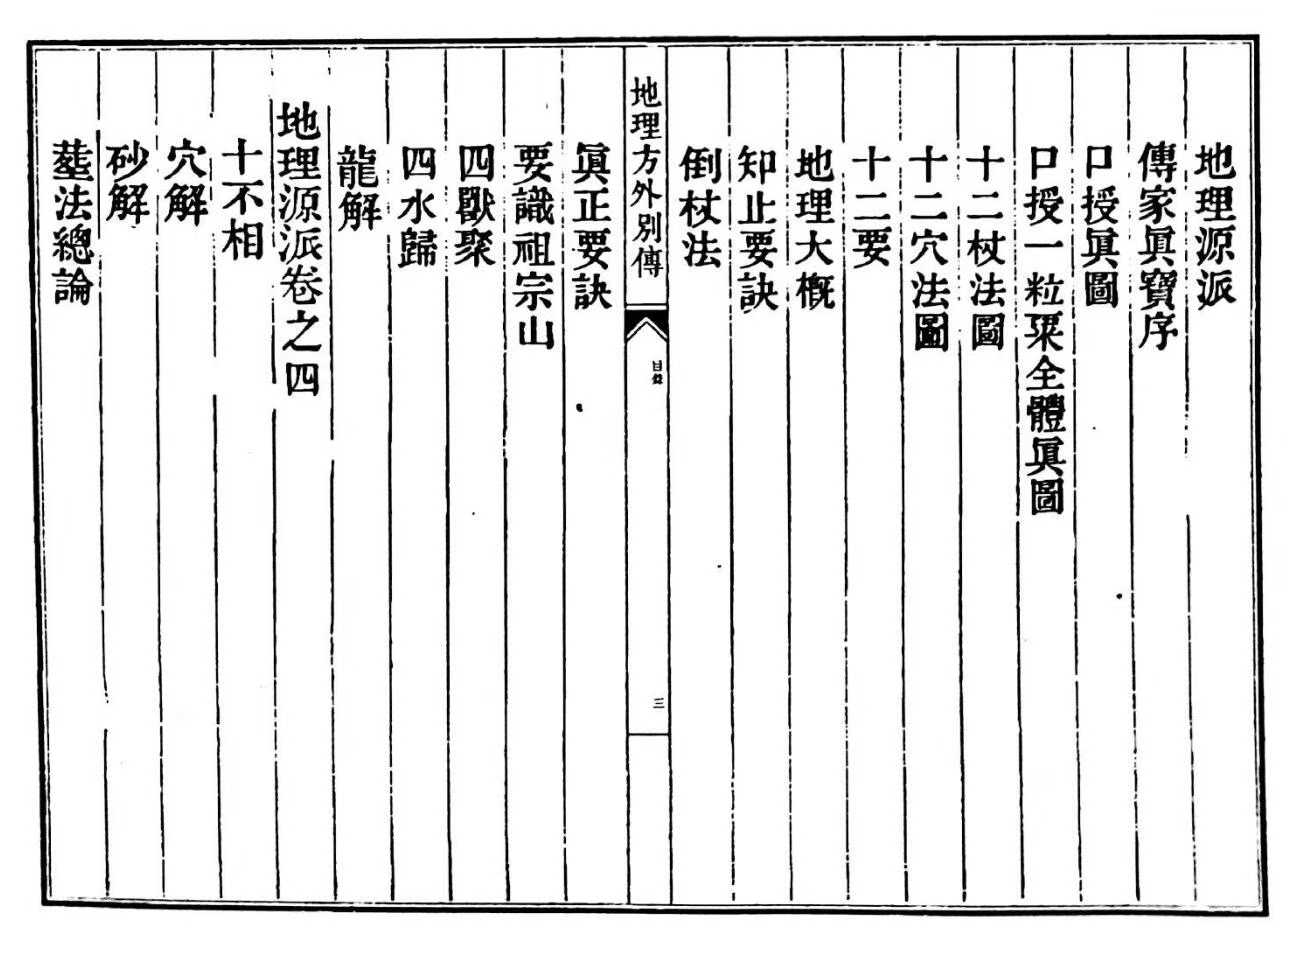 地理源派
傳家眞寶序
口授眞圖
口授一粒粟全體眞圖
十二杖法圖
十二穴法圖
十二要
地理大槪
知止要訣
倒杖法
地理方外別傳
目錄
三
眞正要訣
要識祖宗山
四獸聚
四水歸
龍解
地理源派卷之四
十不相
穴解
砂解
塟法總論